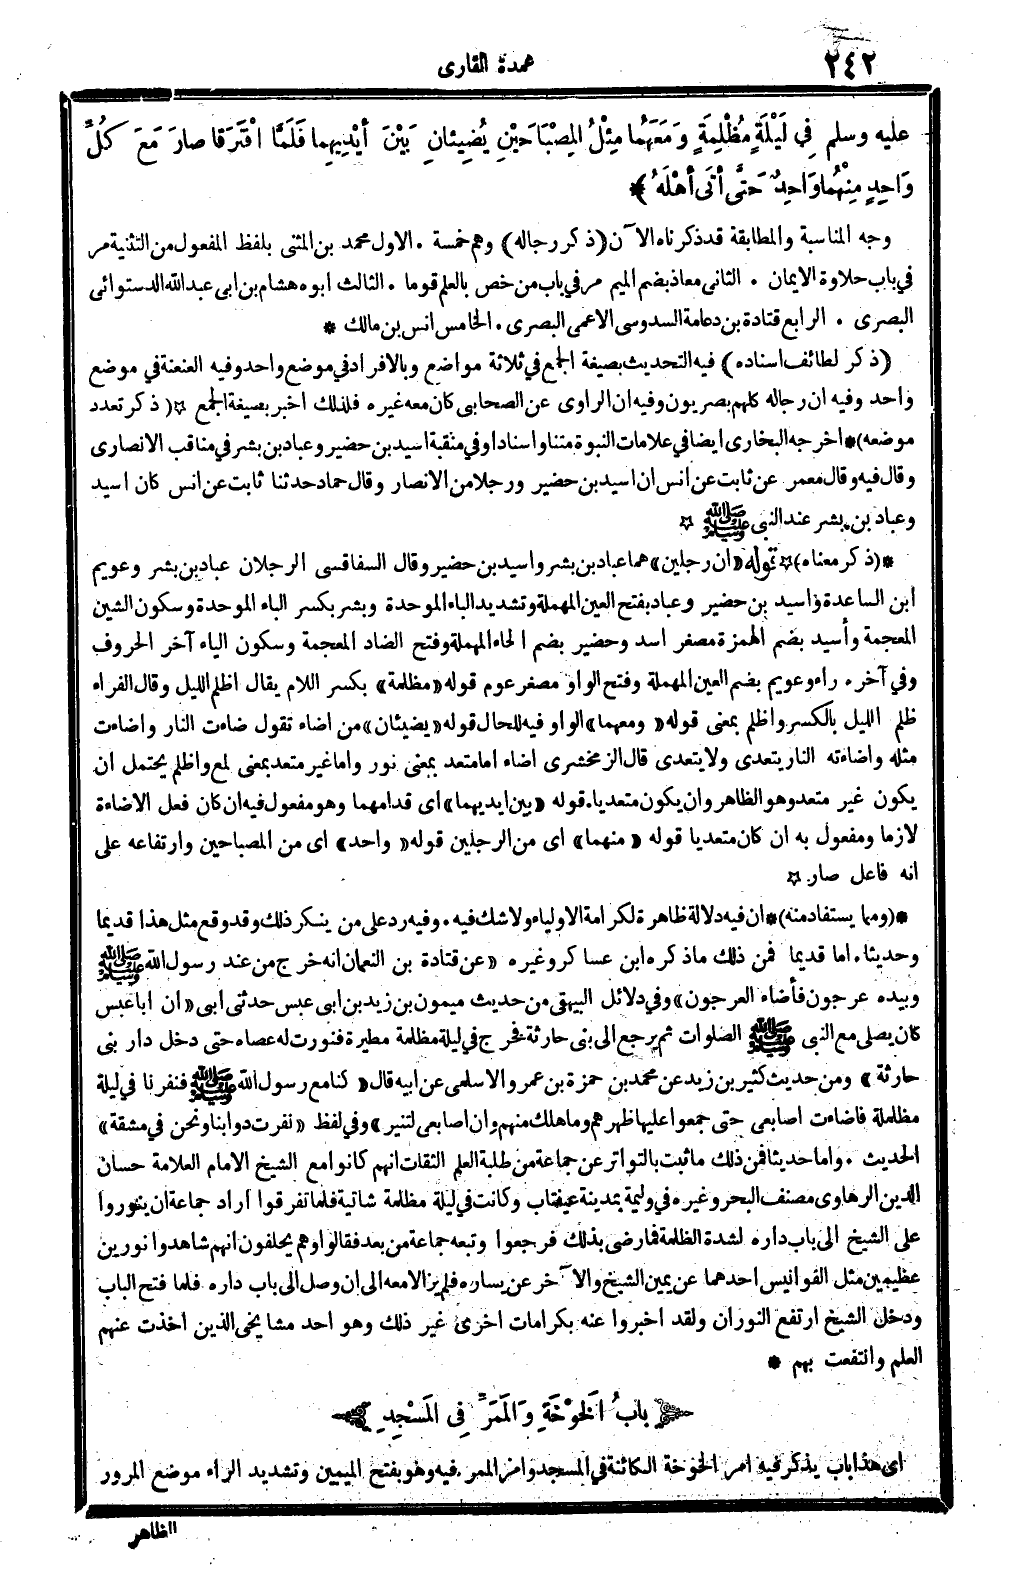 ٢٤٢
عمدة القارى
عليه وسلم فِي لَيْلَةٍ مُظْلِمَةٍ وَمَعَهُمَا مِثْلُ الْمِصْبَاحَيْنِ يُضِيئَانِ بَيْنَ أَيْدِيهِما فَلَمَّا افْتَرَقا صارَ مَعَ كُلِّ
وَاحِدٍ مِنْهُما وَاحِدٌ حَتَّى أَتَى أهْلَهُ ﴾*
وجه المناسبة والمطابقة قد ذكرناه الآن (ذكر رجاله) وهم خمسة . الاول محمد بن المثنى بلفظ المفعول من التثنية مر
في باب حلاوة الايمان . الثانى معاذ بضم الميم مر في باب من خص بالعلم قوما . الثالث ابوه هشام بن ابى عبد الله الدستوائى
البصرى . الرابع قتادة بن دعامة السدوسى الاعمى البصرى . الخامس انس بن مالك *
(ذكر لطائف اسناده) فيه التحديث بصيغة الجمع في ثلاثة مواضع وبالافراد في موضع واحد وفيه العنعنة في موضع
واحد وفيه ان رجاله كلهم بصريون وفيه ان الراوى عن الصحابى كان معه غيره فلذلك اخبر بصيغة الجمع ☆ (ذكر تعدد
موضعه)* اخرجه البخارى ايضا في علامات النبوة متنا واسنادا وفي منقبة اسيد بن حضير وعباد بن بشر في مناقب الانصارى
وقال فيه وقال معمر عن ثابت عن انس ان اسيد بن حضير ورجلا من الانصار وقال حماد حدثنا ثابت عن انس كان اسيد
وعباد بن بشر عند النبى ﷺ ☆
*(ذكر معناه)☆ قوله «ان رجلين» هما عباد بن بشر واسيد بن حضير وقال السفاقسى الرجلان عباد بن بشر وعويم
ابن الساعدة واسيد بن حضير وعباد بفتح العين المهملة وتشديد الباء الموحدة وبشر بكسر الباء الموحدة وسكون الشين
المعجمة وأسيد بضم الهمزة مصغر اسد وحضير بضم الحاء المهملة وفتح الضاد المعجمة وسكون الياء آخر الحروف
وفي آخره راء وعويم بضم العين المهملة وفتح الواو مصغر عوم قوله «مظلمة» بكسر اللام يقال اظلم الليل وقال الفراء
ظلم الليل بالكسر واظلم بمعنى قوله «ومعهما» الواو فيه للحال قوله «يضيئان» من اضاء تقول ضاءت النار واضاءت
مثله واضاءته النار يتعدى ولا يتعدى قال الزمخشرى اضاء اما متعد بمعنى نور واما غير متعد بمعنى لمع واظلم يحتمل ان
يكون غير متعد وهو الظاهر وان يكون متعديا. قوله «بين ايديهما» اى قدامهما وهو مفعول فيه ان كان فعل الاضاءة
لازما ومفعول به ان كان متعديا قوله «منهما» اى من الرجلين قوله «واحد» اى من المصباحين وارتفاعه على
انه فاعل صار ☆
*(ومما يستفاد منه)* ان فيه دلالة ظاهرة لكرامة الاولياء ولا شك فيه . وفيه رد على من ينكر ذلك وقد وقع مثل هذا قديما
وحديثا. اما قديما فمن ذلك ما ذكره ابن عساكر وغيره «عن قتادة بن النعمان انه خرج من عند رسول الله ﷺ
وبيده عرجون فأضاء العرجون» وفي دلائل البيهقى من حديث ميمون بن زيد بن ابى عبس حدثنى ابى «ان ابا عبس
كان يصلى مع النبى ﷺ الصلوات ثم يرجع الى بنى حارثة فخرج في ليلة مظلمة مطيرة فنورت له عصاه حتى دخل دار بنى
حارثة» ومن حديث كثير بن زيد عن محمد بن حمزة بن عمرو الاسلمى عن ابيه قال «كنا مع رسول الله ﷺ فنفرنا في ليلة
مظلمة فاضاءت اصابعى حتى جمعوا عليها ظهرهم وما هلك منهم وان اصابعى لتنير» وفي لفظ «نفرت دوابنا ونحن في مشقة»
الحديث . واما حديثا فمن ذلك ما ثبت بالتواتر عن جماعة من طلبة العلم الثقات انهم كانوا مع الشيخ الامام العلامة حسان
الدين الرهاوى مصنف البحر وغيره في وليمة بمدينة عيفتاب وكانت في ليلة مظلمة شاتية فلما تفرقوا اراد جماعة ان ينوروا
على الشيخ الى باب داره لشدة الظلمة فما رضى بذلك فرجعوا وتبعه جماعة من بعد فقالوا وهم يحلفون انهم شاهدوا نورين
عظيمين مثل الفوانيس احدهما عن يمين الشيخ والآخر عن يساره فلم يزالا معه الى ان وصل الى باب داره فلما فتح الباب
ودخل الشيخ ارتفع النوران ولقد اخبروا عنه بكرامات اخرى غير ذلك وهو احد مشايخى الذين اخذت عنهم
العلم وانتفعت بهم *
بابُ الْخَوْخَةِ وَالْمَمَرِّ فِي الْمَسْجِدِ
اى هذا باب يذكر فيه امر الخوخة الكائنة في المسجد وامر الممر فيه وهو بفتح الميمين وتشديد الراء موضع المرور
الظاهر